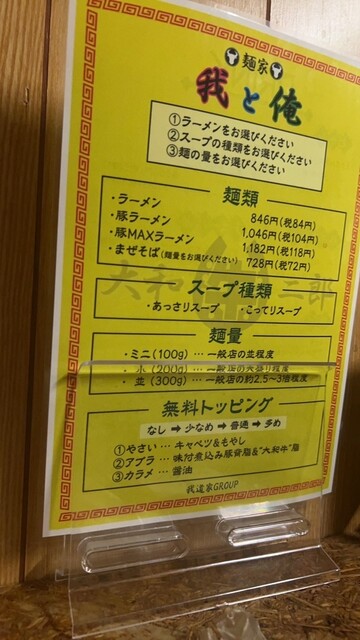 麺家
我と俺
①ラーメンをお選びください
②スープの種類をお選びください
③麺の量をお選びください
麺類
・ラーメン 846円(税84円)
・豚ラーメン 1,046円(税104円)
・豚MAXラーメン 1,182円(税118円)
・まぜそば(麺量をお選びください) 728円(税72円)
大和 二郎
スープ種類
・あっさりスープ ・こってりスープ
麺量
・ミニ(100g) … 一般店の並程度
・小(200g) … 一般店の大盛り程度
・並(300g) … 一般店の約2.5〜3泊程度
無料トッピング
なし ➡ 少なめ ➡ 普通 ➡ 多め
①やさい … キャベツ&もやし
②アブラ … 味付煮込み豚背脂&"大和牛"脂
③カラメ … 醤油
我道家GROUP